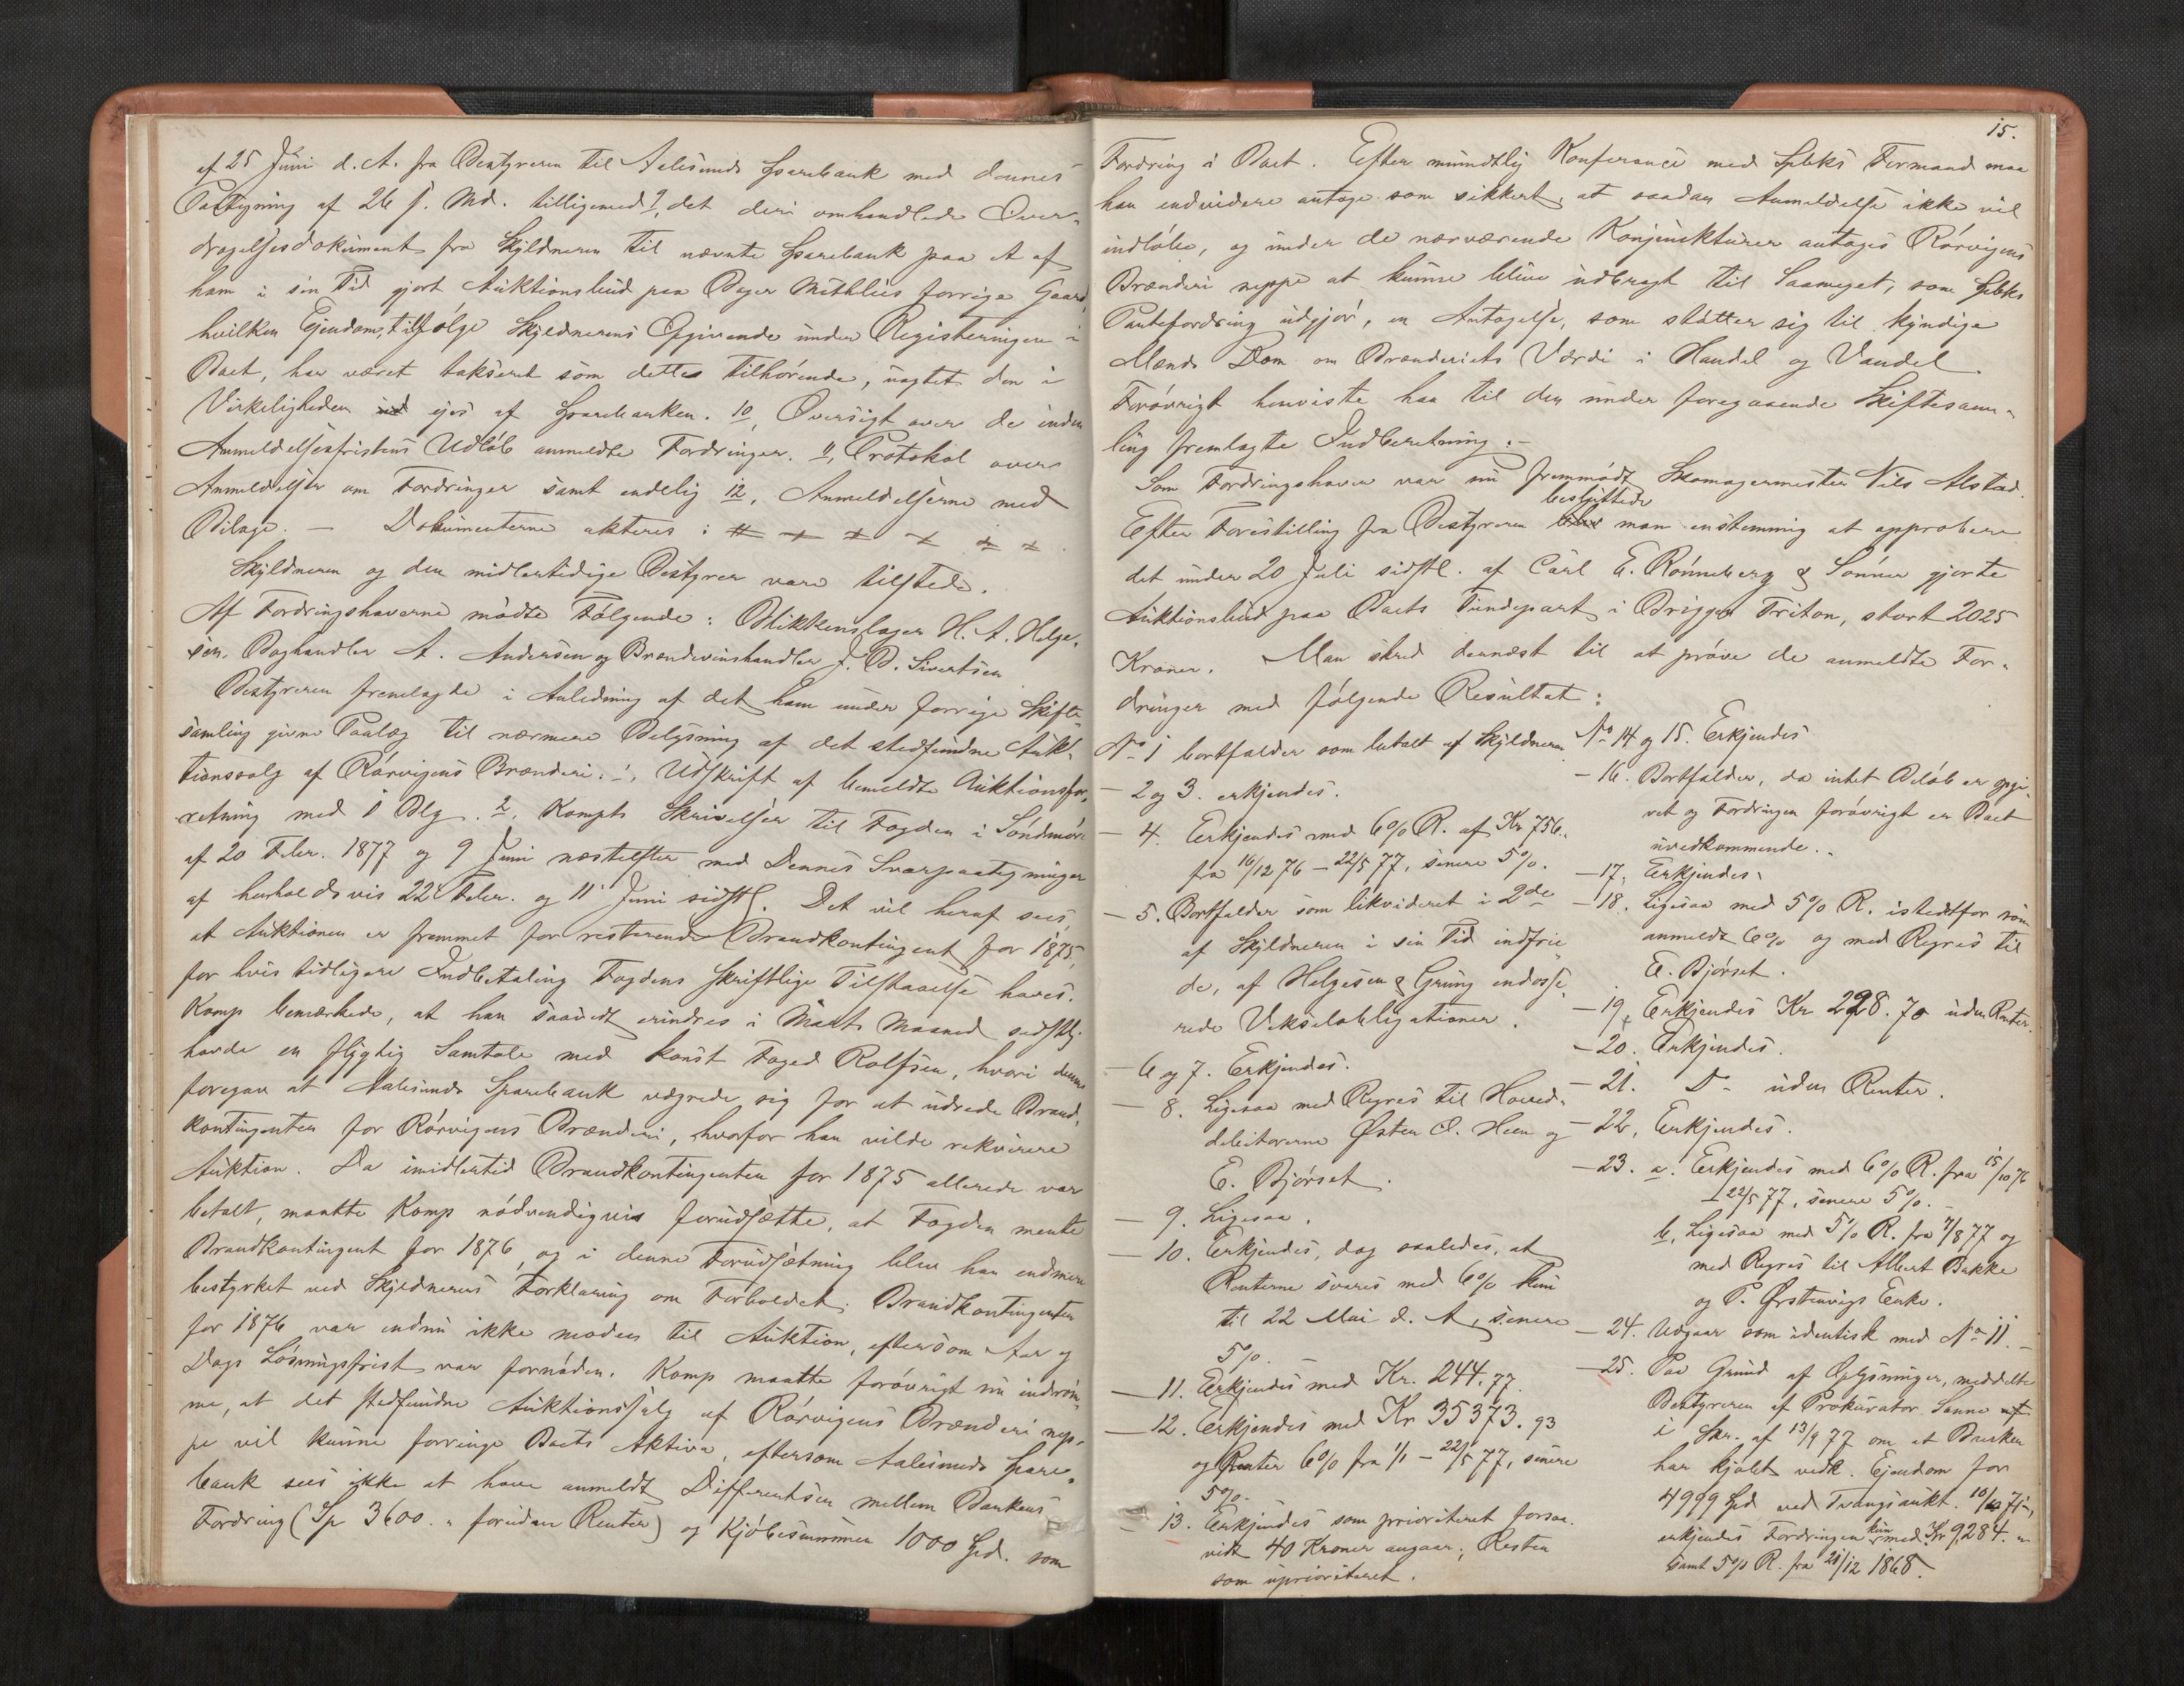 af 25 Juni d. A. fra Bestyreren til Aalesunds Sparebank med dennes
Paategning af 26 s. Md. tilligemed 9, det deri omhandlede Over-
dragelsesdokument fra Skyldneren til nævnte Sparebank paa et af
ham i sin Tid gjort Auktionsbud paa Bager forrige Gaard,
hvilken Ejendom, tilfølge Skyldnerens Opgivende under Registeringen i
Boet, har været takseret som dettes tilhørende, uagtet den i
Virkeligheden ejes af Sparebanken. 10, Oversigt over de inden
Anmeldelsesfristens Udløb anmeldte Fordringer. 11, Protokol over
Anmeldelser om Fordringer samt endelig 12, Anmeldelserne med
Bilage. — Dokumenterne akteres:
Skyldneren og den midlertidige Bestyrer vare tilstede.
Af Fordringshaverne mødte Følgende: Blikkenslager H. A. Helge-
sen, Boghandler A. Andersen og Brændevinshandler J. B. Sivertsen
Bestyreren fremlagde i Anledning af det ham under forrige Skifte-
samling givne Paalæg til nærmere Belysning af det stedfundne Auk-
tionssalg af Rørvigens Brænderi: 1, Udskrift af bemeldte Auktionsfor-
retning med 1 Blg. 2, Komps Skrivelser til Fogden i Søndmør
af 20 Febr. 1877 og 9 Juni næstefter med Dennes Svarpaategninger
af henholdsvis 22 Febr. og 11 Juni sidstl. Det vil heraf sees,
at Auktionen er fremmet for resterende Brandkontingent for 1875,
for hvis tidligere Indbetaling Fogdens skriftlige Tilstaaelse haves.
Komp bemærkede, at han saavidt erindres i Marts Maaned sidstl.
havde en flygtig Samtale med konst Foged Rolfsen, hvori denne
foregav at Aalesunds Sparebank vægrede sig for at udrede Brand-
kontingenten for Rørvigens Brænderi, hvorfor han vilde rekvirere
Auktion. Da imidlertid Brandkontingenten for 1875 allerede var
betalt, maatte Komp nødvendigvis forudsætte, at Fogden mente
Brandkontingent for 1876, og i denne Forudsætning blev han endmere
bestyrket ved Skyldnerens Forklaring om Forholdet. Brandkontingenten
for 1876 var endnu ikke moden til Auktion, eftersom Aar og
Dags Løsningsfrist var fornøden. Komp maatte forøvrigt nu indrøm-
me, at det stedfundne Auktionssalg af Rørvigens Brænderi nep-
pe vil kunne forringe Boets Aktiva, eftersom Aalesunds Spare-
bank sees ikke at have anmeldt Differentsen mellem Bankens
Fordring (Sp 3600. " foruden Renter) og Kjøbesummen 1000 Spd. som
15.
Fordring i Boet. Efter mundtlig Konference med Spbks Formand maa
han endvidere antage som sikkert, at saadan Anmeldelse ikke vil
indløbe, og under de nærværende Konjunkturer antages Rørvigens
Brænderi neppe at kunne blive udbragt til Saameget, som Spbks
Pantefordring udgjør, en Antagelse, som støtter sig til kyndige
Mænds Dom om Brænderiets Værdi i Handel og Vandel.
Forøvrigt henviste han til den under foregaaende Skiftesam-
ling fremlagte Indberetning. —
Som Fordringshaver var nu fremmødt Skomagermester Nils Alstad.
besluttede
Efter Forestilling fra Bestyreren man enstemmig at approbere
det under 20 Juli sidstl. af Carl E. Rønneberg & Sønner gjorte
Auktionsbud paa Boets Tiendepart i Briggen Triton, stort 2025
Kroner. Man skred dernæst til at prøve de anmeldte For-
dringer med følgende Resultat:
No 1 bortfalder som betalt af Skyldneren
— 2 og 3. erkjendes.
— 4. Erkjendes med 6% R. af Kr 756.
fra 16/12 76 – 22/5 77, senere 5%.
— 5. Bortfalder som likvideret i 2de
af Skyldneren i sin Tid indfrie-
de, af Helgesen & Grung endosse-
rede Vekselobligationer.
— 6 og 7. Erkjendes.
— 8. Ligesaa med Regres til Hoved-
debitorerne Østen O. Heen og
E. Bjørset.
— 9. Ligesaa.
— 10. Erkjendes, dog saaledes, at
Renterne svares med 6% kun
til 22 Mai d. A, senere
5%.
— 11. Erkjendes med Kr. 244.77.
— 12. Erkjendes med Kr 35373.93
og Renter 6% fra 1/1 – 22/5 77, senere
5%.
— 13. Erkjendes som prioriteret forsaa-
vidt 40 Kroner angaar; Resten
som uprioriteret.
No 14 og 15. Erkjendes
— 16. Bortfalder, da intet Beløb er opgi-
vet og Fordringen forøvrigt er Boet
uvedkommende. —
— 17. Erkjendes.
— 18. Ligesaa med 5% R. istedtfor som
anmeldt 6% og med Regres til
E. Bjørset.
— 19. Erkjendes Kr 298.70 uden Renter.
— 20. Erkjendes.
— 21. Do uden Renter.
— 22. Erkjendes.
— 23. a. Erkjendes med 6% R. fra 15/10 76
– 22/5 77, senere 5%. —
b, Ligesaa med 5% R. fra 7/8 77 og
med Regres til Albert Bakke
og P. Ørstenvigs Enke.
— 24. Udgaar som identisk med No 11. —
— 25. Paa Grund af Oplysninger, meddelte
Bestyreren af Prokurator Sanne
i Skr. af 13/9 77 om at Banken
har kjøbt vedk. Ejendom for
4999 Spd ved Tvangsaukt. 10/10 71,
erkjendes Fordringen kun med Kr 9,284. "
samt 5% R. fra 21/12 1868.